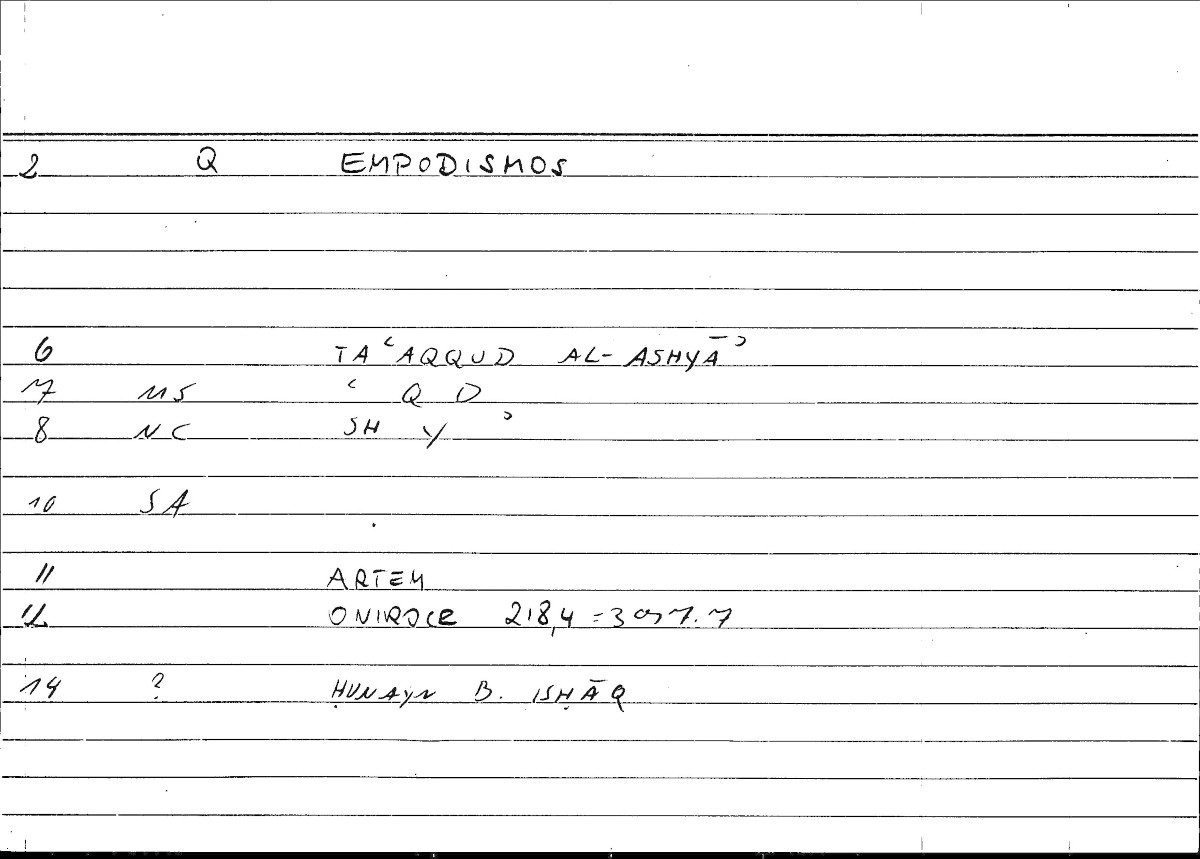 2 Q EMPODISMOS
6 TA ʿAQQUD AL-ASHYĀʾ
7 MS ʿ Q D
8 NC SH Y ʾ
10 SA
11 ARTEM
12 ONIROCR 218,4 =
14 ? ḤUNAYN B. ISḤĀQ